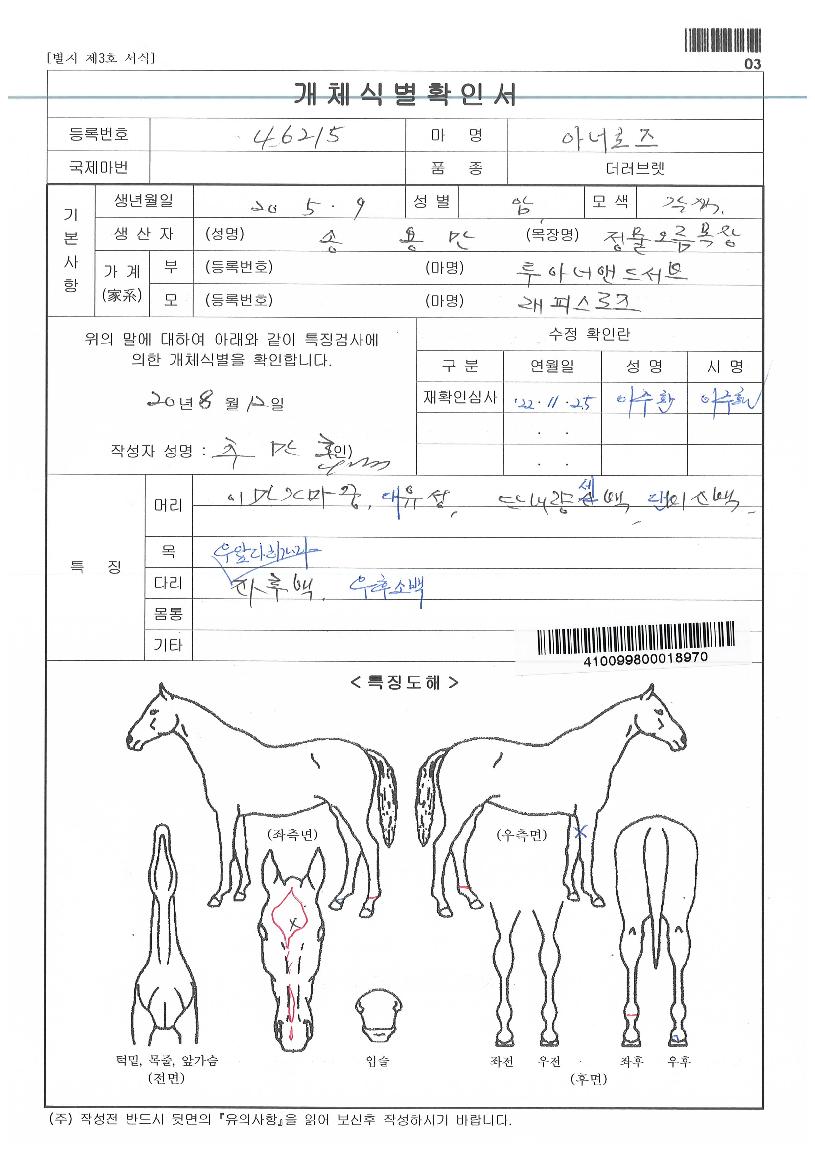 [별지 제3호 서식]
03
개체식별확인서
등록번호 46215 마 명 아너로즈
국제마번 품 종 더러브렛
기본사항
생년월일 20 5 . 9 성 별 암 모 색
생 산 자 (성명) 송 용 만 (목장명) 정물오름목장
가 계 (家系) 부 (등록번호) (마명) 투아너앤드서브
모 (등록번호) (마명) 래피스로즈
위의 말에 대하여 아래와 같이 특징검사에
의한 개체식별을 확인합니다.
20년 8월 12일
작성자 성명 : (인)
수정 확인란
구 분 연월일 성 명 시 명
재확인심사 '22. 11. 25 이수환
. .
. .
특 징
머리 대유성,
목
다리 좌후백, 우후소백
몸통
기타
410099800018970
< 특징도해 >
(좌측면) (우측면)
턱밑, 목줄, 앞가슴 입술 좌전 우전 좌후 우후
(전면) (후면)
(주) 작성전 반드시 뒷면의 『유의사항』을 읽어 보신후 작성하시기 바랍니다.